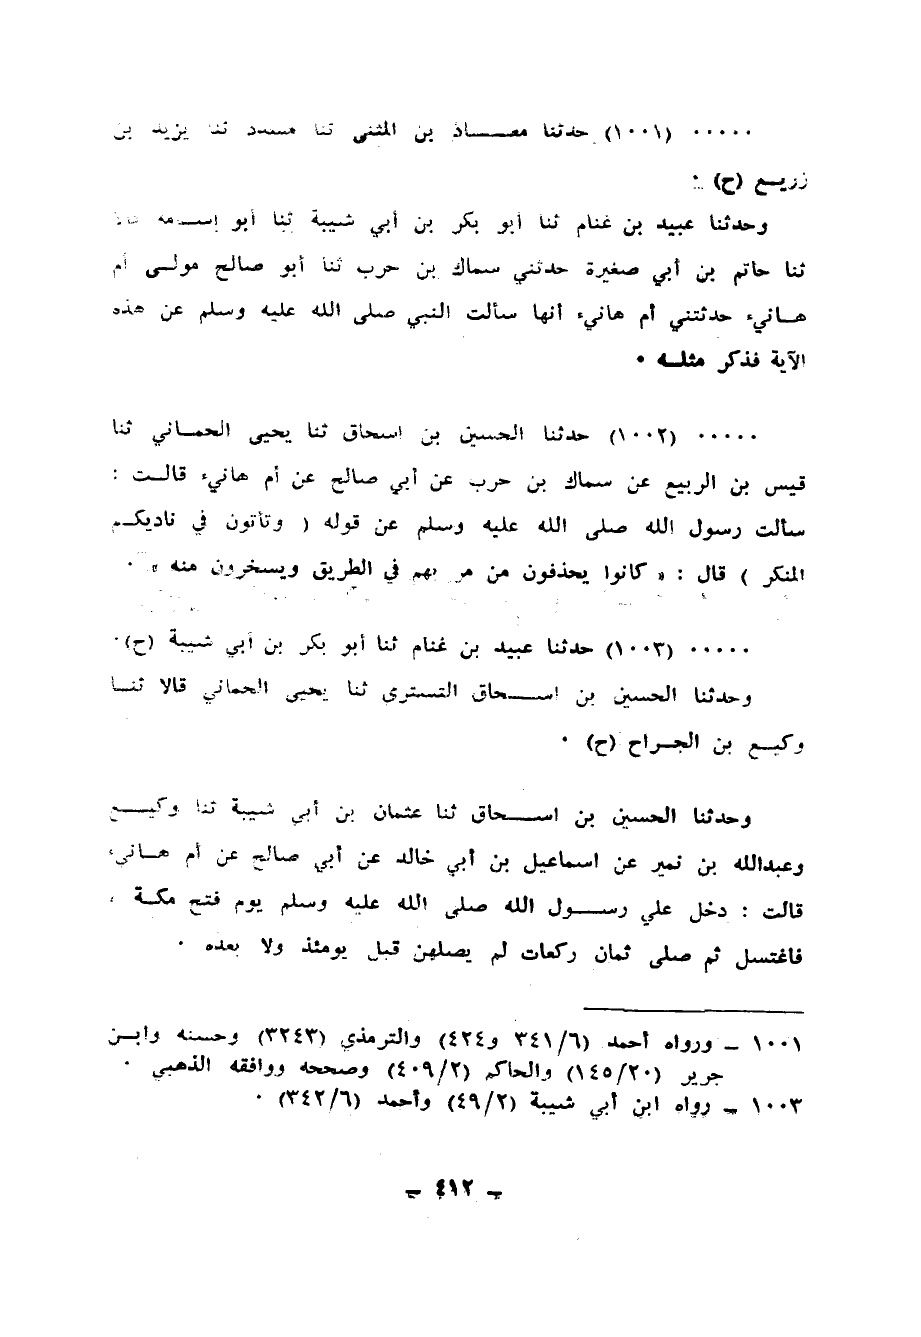 ..... (١٠٠١) حدثنا معـــاذ بن المثنى ثنا مسدد ثنا يزيد بن
زريــع (ح) .
وحدثنا عبيد بن غنام ثنا أبو بكر بن أبي شيبة ثنا أبو
ثنا حاتم بن أبي صغيرة حدثني سماك بن حرب ثنا أبو صالح مولــى أم
هــانيء حدثتني أم هانيء أنها سألت النبي صلى الله عليه وسلم عن هذه
الآية فذكر مثلــه .
..... (١٠٠٢) حدثنا الحسين بن اسحاق ثنا يحيى الحمــاني ثنا
قيس بن الربيع عن سماك بن حرب عن أبي صالح عن أم هانيء قالــت :
سألت رسول الله صلى الله عليه وسلم عن قوله ( وتأتون في ناديكــم
المنكر ) قال : « كانوا يحذفون من مر بهم في الطريق ويسخرون منه » .
..... (١٠٠٣) حدثنا عبيد بن غنام ثنا أبو بكر بن أبي شيبة (ح) .
وحدثنا الحسين بن اســـحاق التسترى ثنا يحيى الحماني قالا ثنــا
وكيــع بن الجــراح (ح) .
وحدثنا الحسين بن اســـحاق ثنا عثمان بن أبي شيبة ثنا وكيـــع
وعبدالله بن نمير عن اسماعيل بن أبي خالد عن أبي صالح عن أم هــانيء
قالت : دخل علي رســـول الله صلى الله عليه وسلم يوم فتح مكــة ،
فاغتسل ثم صلى ثمان ركعات لم يصلهن قبل يومئذ ولا بعده .
١٠٠١ ــ ورواه أحمد (٣٤١/٦ و٤٢٤) والترمذي (٣٢٤٣) وحسنه وابــن
جرير (١٤٥/٢٠) والحاكم (٤٠٩/٢) وصححه ووافقه الذهبي .
١٠٠٣ ــ رواه ابن أبي شيبة (٤٩/٢) وأحمد (٣٤٢/٦) .
ــ ٤١٢ ــ